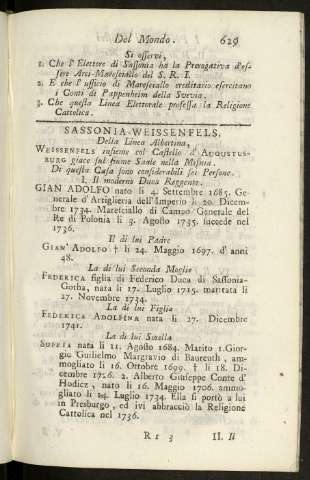 Del Mondo. 629
Si osservi,
1. Che l'Elettore di Sassonia ha la Prerogativa d'es-
sere Arci-Maresciallo del S. R. I.
2. E che l'ufficio di Maresciallo ereditario esercitano
i Conti di Pappenheim della Svevia.
3. Che questa Linea Elettorale professa la Religione
Cattolica.
SASSONIA-WEISSENFELS,
Della Linea Albertina,
WEISSENFELS insieme col Castello d'AUGUSTUS-
BURG giace sul fiume Saale nella Misnia.
Di questa Casa sono considerabili sei Persone.
I. Il moderno Duca Reggente.
GIAN ADOLFO nato li 4. Settembre 1685. Ge-
nerale d'Artiglieria dell'Imperio li 20. Dicem-
bre 1734. Maresciallo di Campo Generale del
Re di Polonia li 3. Agosto 1735. succede nel
1736.
Il di lui Padre
GIAN' ADOLFO † li 24. Maggio 1697. d'anni
48.
La di lui Seconda Moglie
FEDERICA figlia di Federico Duca di Sassonia-
Gotha, nata li 17. Luglio 1715. maritata li
27. Novembre 1734.
La di lui Figlia
FEDERICA ADOLFINA nata li 27. Dicembre
1741.
La di lui Sorella
SOFIA nata li 11. Agosto 1684. Marito 1. Gior-
gio Guilielmo Margravio di Baureuth, am-
mogliato li 16. Ottobre 1699. † li 18. Di-
cembre 1726. 2. Alberto Giuseppe Conte d'
Hodiez, nato li 16. Maggio 1706. ammo-
gliato li 14. Luglio 1734. Ella si portò a lui
in Presburgo, ed ivi abbracciò la Religione
Cattolica nel 1736.
R r 3 II. Il